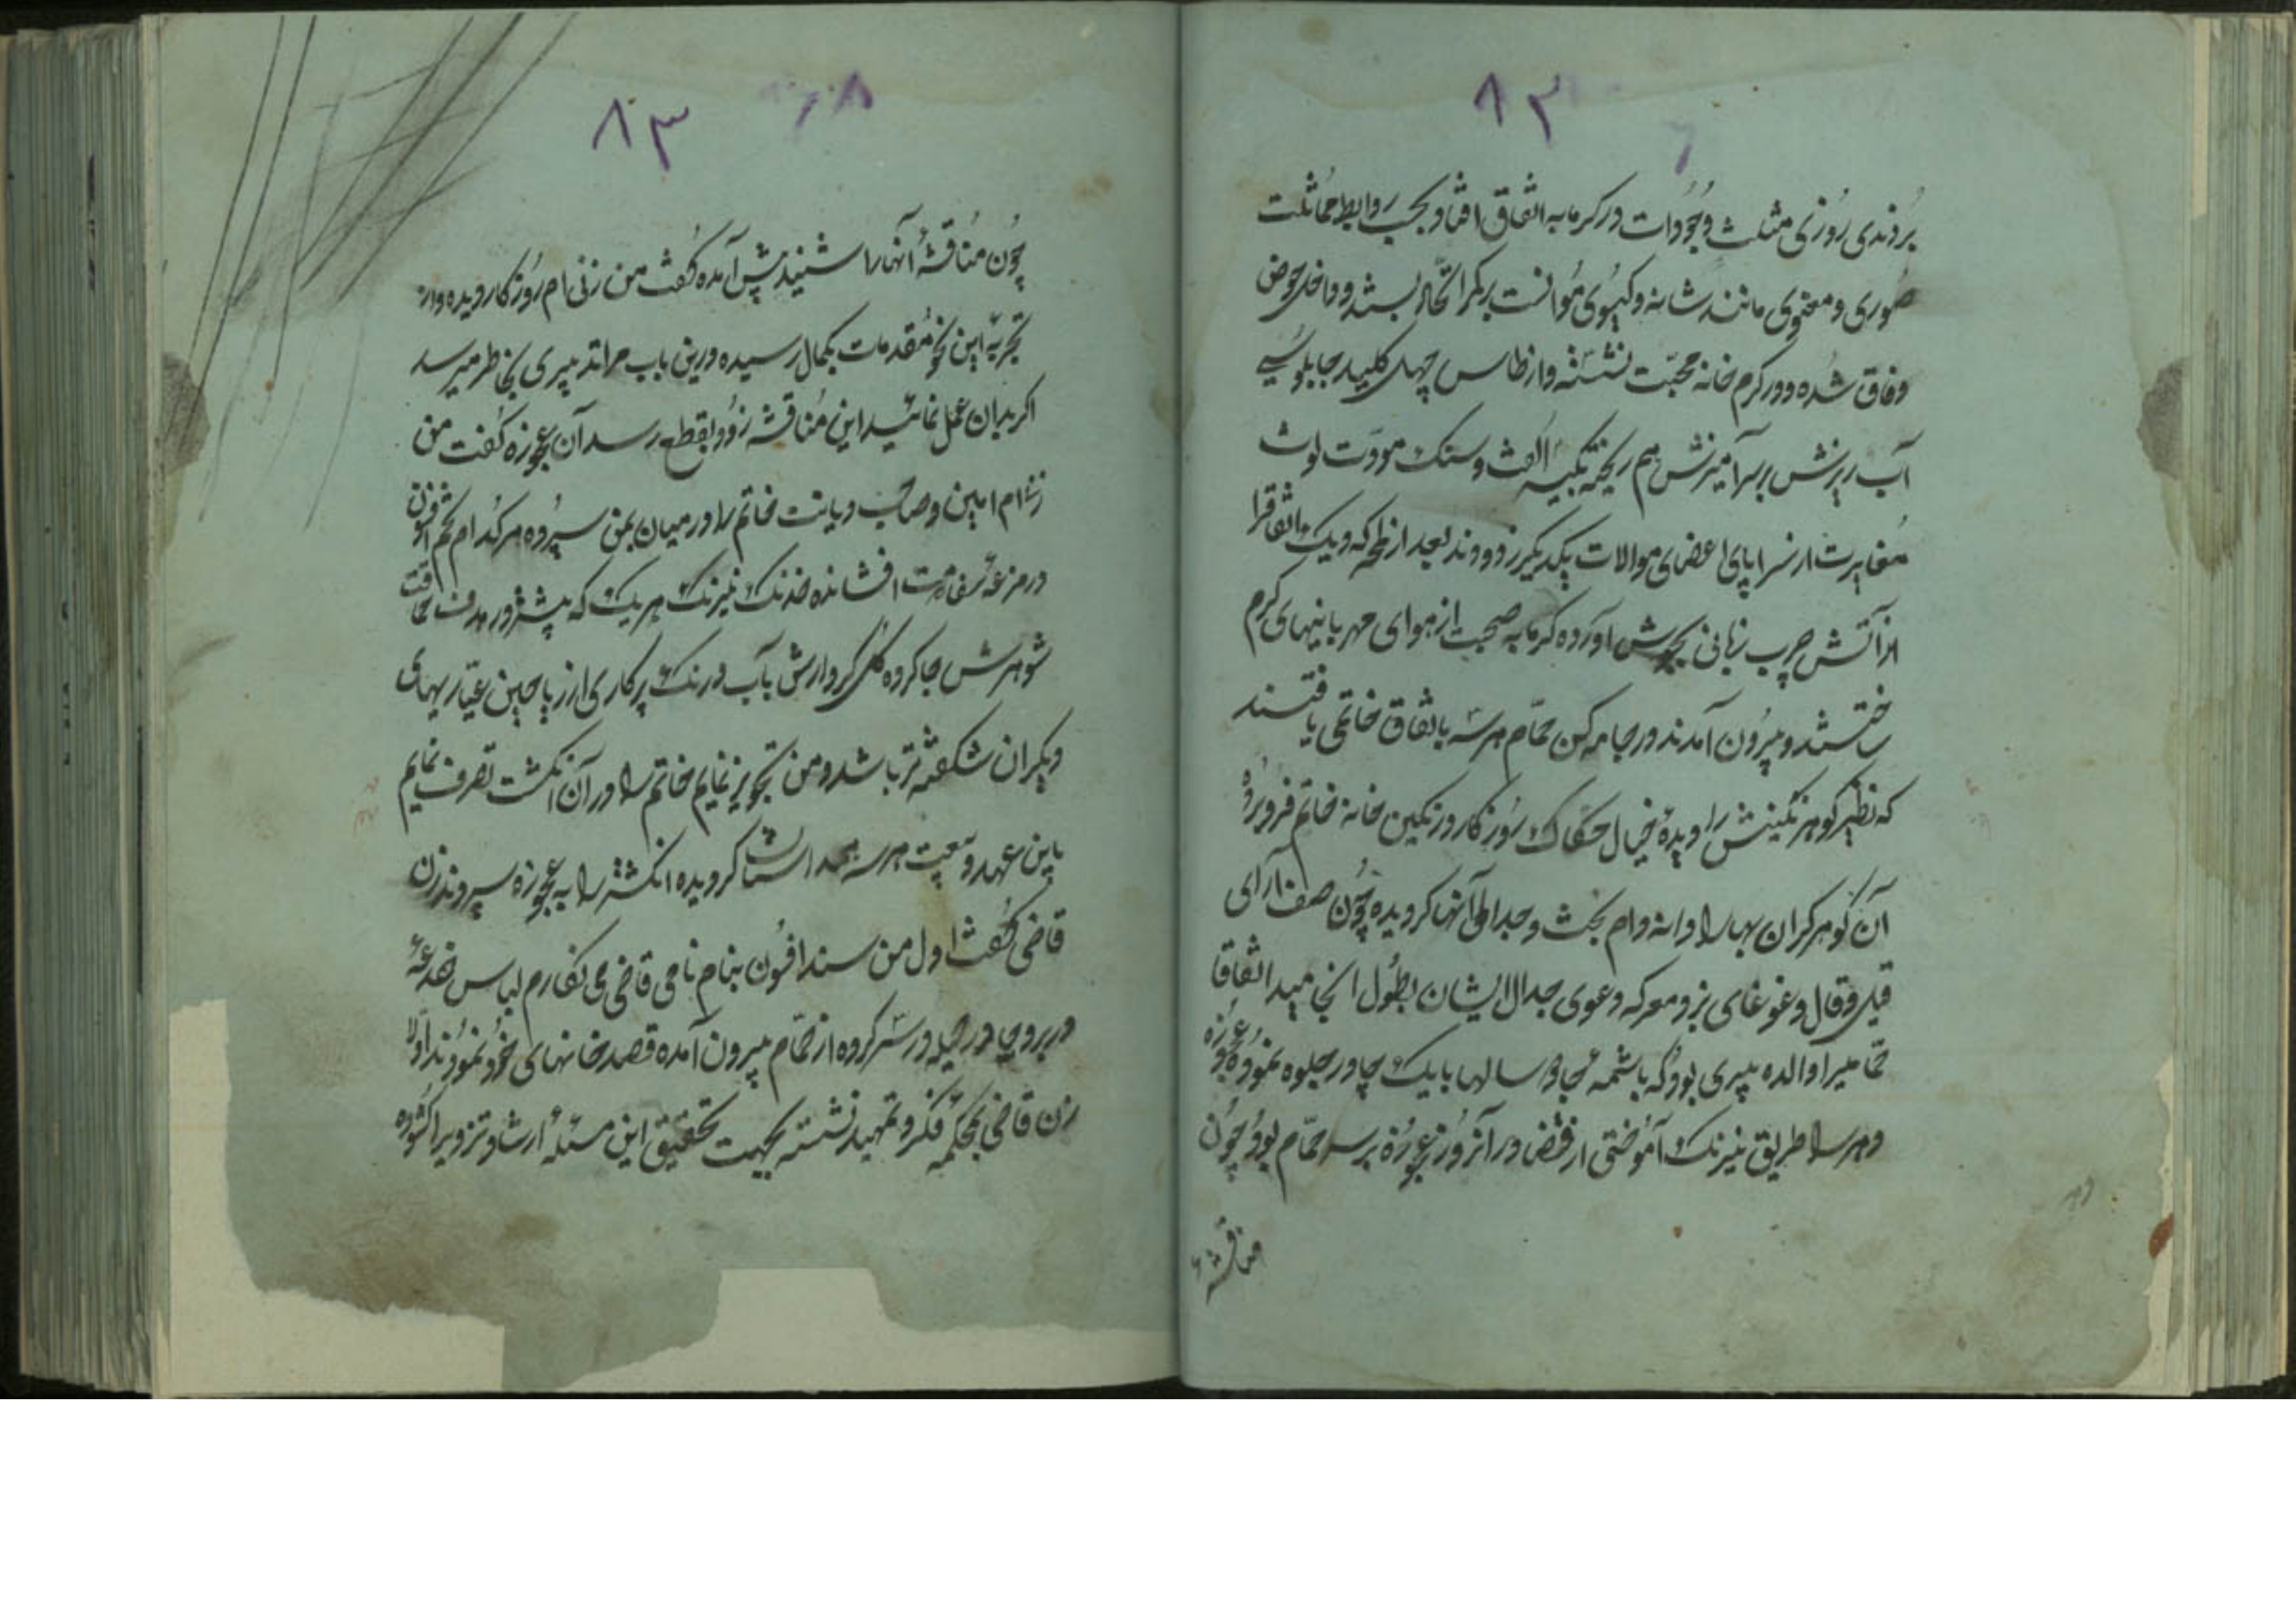 ۸۳
بردندی روزی مثلث وجودات در کرمابه اتفاق افتاد بحسب روابط مماثلت
صوری و معنوی مانند شانه و کیسوی موانست بر کمر اتحاد بسته و داخل حوض
وفاق شده و در کرم خانه محبت نشسته و از طاس چهل کلید چابلوسی
آب ریزش بر سر آمیزش هم ریخته بکیسه الفت و سنک مودت لوث
مغایرت از سراپای اعضای موالات یکدیکر زدودند بعد از انکه دیک اتفاق را
از آتش چرب زبانی بجوش آورده کرمابه صحبت از هوای مهربانیهای کرم
ساختند و بیرون آمدند در جامه کن حمام هر سه باتفاق خاتمی یافتند
که نظیر کوهر نکینش را دیده خیال حکاک روزکار در نکین خانه خاتم فرو برده
آن کوهر کران بها را دانه دام بحث و جدل آنها کردیده چون صف آرای
قیل و قال و غوغای بزم و معرکه دعوی جدال ایشان بطول انجامید اتفاقا
حمامی را والده پیری بود که باشمه جادو سالها بایک چادر جلوه نموده عجوزه
و هر سه را طریق نیرنک آموختی از قضا در آنروز عجوزه بر سر حمام بود چون
مناقشهٔ
۸۳
چون مناقشهٔ آنها را شنید پیش آمده کفت من زنی ام روزکار دیده و از
تجربهٔ این نحو مقدمات بکمال رسیده در این باب مرا تدبیری بخاطر میرسد
اکر بدان عمل نمائید این مناقشه زود بقطع رسد آن عجوزه کفت من
زنی ام امین و صاحب دیانت خاتم را در میان بمن سپرده هر کدام تخم افسون
در مزرعهٔ سفاهت افشانده خدنک نیرنک هر یک که بیشتر در هدف حماقت
شوهرش جا کرده کل کردارش بآب و رنک پرکاری از ریاحین عیاریهای
دیکران شکفته تر باشد و من تجویز نمایم خاتم را در آن انکشت تصرف نمایم
باین عهد و بیعت هر سه همداستان کردیده انکشتر را به عجوزه سپردند زن
قاضی کفت اول من سند افسون بنام نامی قاضی می نکارم لباس خدعهٔ
در بر و چادر حیله در سر کرده از حمام بیرون آمده قصد خانهای خود نمودند اولا
زن قاضی بمحکمهٔ فکر و تمهید نشسته بجهت تحقیق این مسئله ارشاد تزویر را کشوده